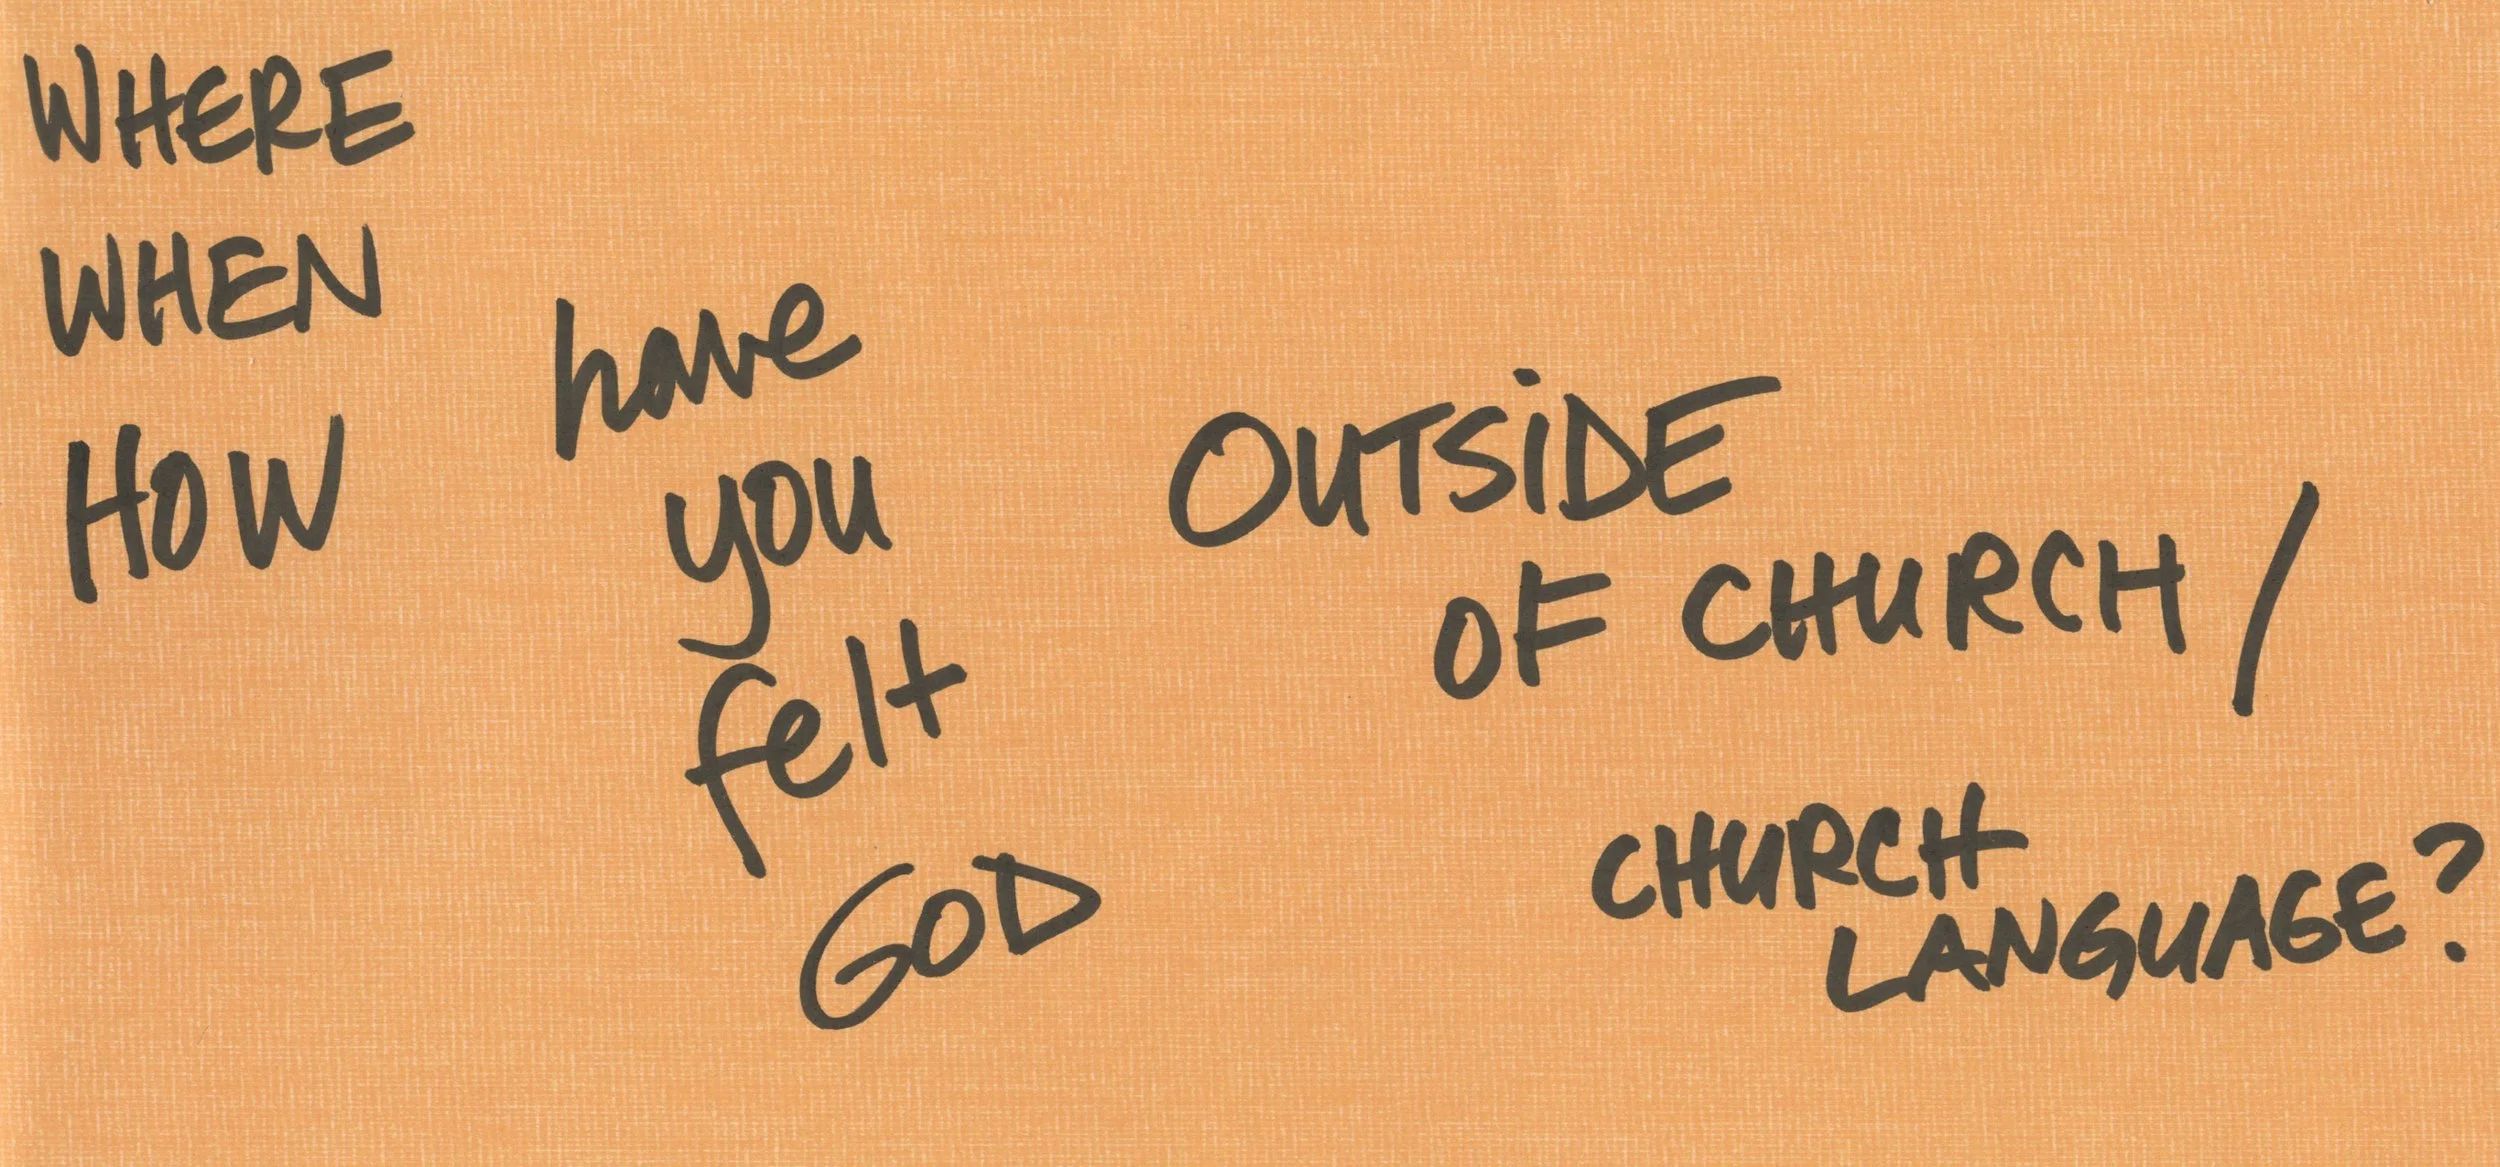 WHERE
WHEN
HOW
have
you
felt
GOD
OUTSIDE
OF CHURCH/
CHURCH
LANGUAGE?